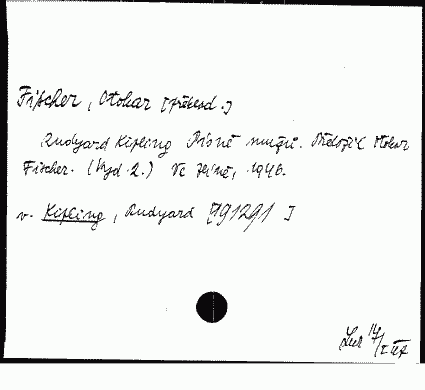 Fischer, Otokar [překlad.]
Rudyard Kipling Písně mužů. Přeložil Otokar
Fischer. (Vyd. 2.) 1946.
v. Kipling, Rudyard [791291]